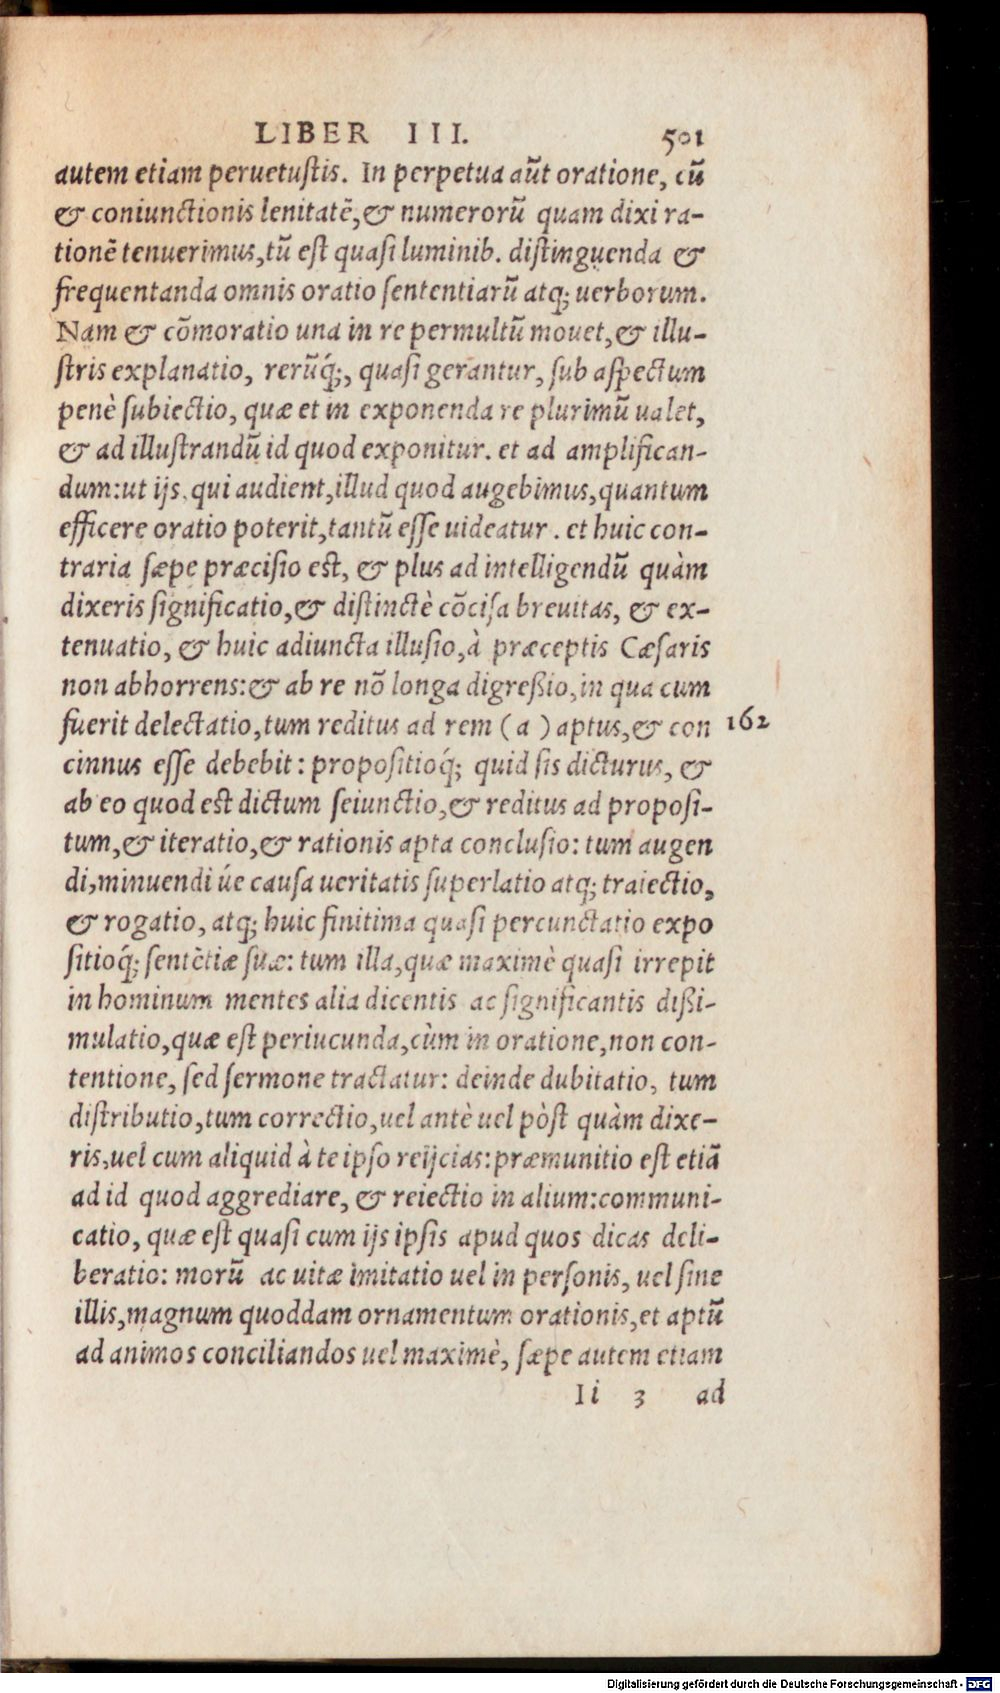 LIBER III. 501
autem etiam peruetustis. In perpetua aũt oratione, cũ
& coniunctionis lenitatẽ, & numerorũ quam dixi ra-
tionẽ tenuerimus, tũ est quasi luminib. distinguenda &
frequentanda omnis oratio sententiarũ atq; uerborum.
Nam & cõmoratio una in re permultũ mouet, & illu-
stris explanatio, rerũq́;, quasi gerantur, sub aspectum
penè subiectio, quæ et in exponenda re plurimũ ualet,
& ad illustrandũ id quod exponitur. et ad amplifican-
dum: ut ijs, qui audient, illud quod augebimus, quantum
efficere oratio poterit, tantũ esse uideatur. et huic con-
traria sæpe præcisio est, & plus ad intelligendũ quàm
dixeris significatio, & distinctè cõcisa breuitas, & ex-
tenuatio, & huic adiuncta illusio, à præceptis Cæsaris
non abhorrens: & ab re nõ longa digreßio, in qua cum
fuerit delectatio, tum reditus ad rem (a) aptus, & con 162
cinnus esse debebit: propositioq́; quid sis dicturus, &
ab eo quod est dictum seiunctio, & reditus ad proposi-
tum, & iteratio, & rationis apta conclusio: tum augen
di, minuendi úe causa ueritatis superlatio atq; traiectio,
& rogatio, atq; huic finitima quasi percunctatio expo
sitioq́; sentẽtiæ suæ: tum illa, quæ maximè quasi irrepit
in hominum mentes alia dicentis ac significantis dißi-
mulatio, quæ est periucunda, cùm in oratione, non con-
tentione, sed sermone tractatur: deinde dubitatio, tum
distributio, tum correctio, uel antè uel pòst quàm dixe-
ris, uel cum aliquid à te ipso reijcias: præmunitio est etiã
ad id quod aggrediare, & reiectio in alium: communi-
catio, quæ est quasi cum ijs ipsis apud quos dicas deli-
beratio: morũ ac uitæ imitatio uel in personis, uel sine
illis, magnum quoddam ornamentum orationis, et aptũ
ad animos conciliandos uel maximè, sæpe autem etiam
Ii 3 ad
Digitalisierung gefördert durch die Deutsche Forschungsgemeinschaft - DFG